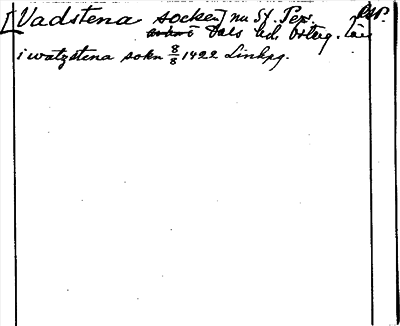 [Vadstena socken] nu S:t Pers. 
Dals hd. Österg. län
i watzstena sokn 8/8 1422 Linkpg.